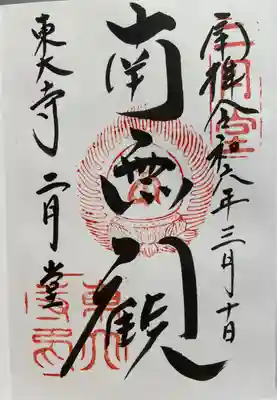 奉拝令和六年三月十日
南無観
東大寺二月堂